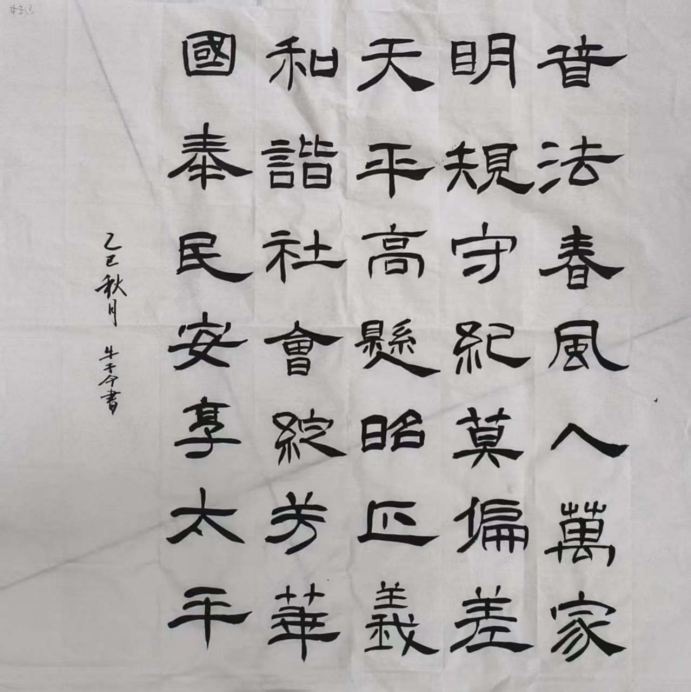 普法春風入萬家
明規守紀莫偏差
天平高懸昭正義
和諧社會綻芳華
國泰民安享太平
乙巳秋月 牛書